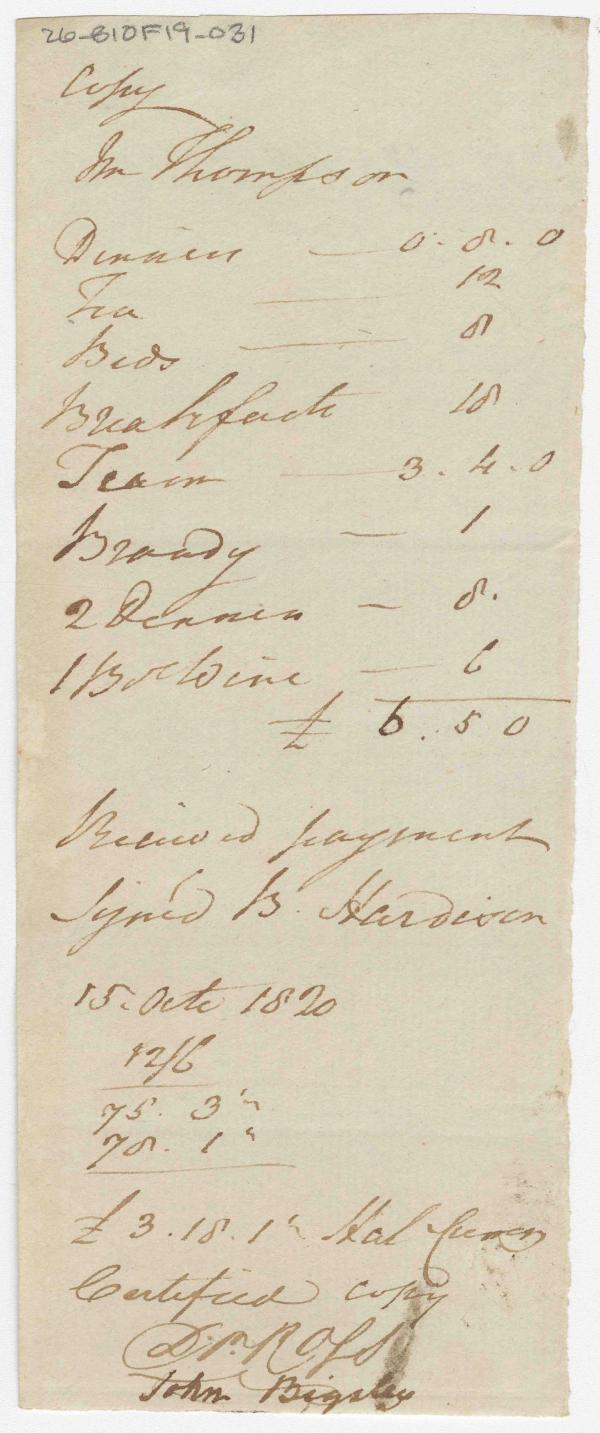 26-B10F19-031
Copy
Mr Thompson
Dinners — 0. 8. 0
Tea — 12
Beds — 8
Breakfasts 18
Team — 3. 4. 0
Brandy — 1
2 Dinners — 8.
1 Bot Wine — 6
£ 6. 5 0
Received payment
Signed B. Hardison
15. Octr 1820
12/6
75. 3
78. 1
£ 3. 18. 1 Hal Curency
Certified copy
Dd. Ross
John Bigsby